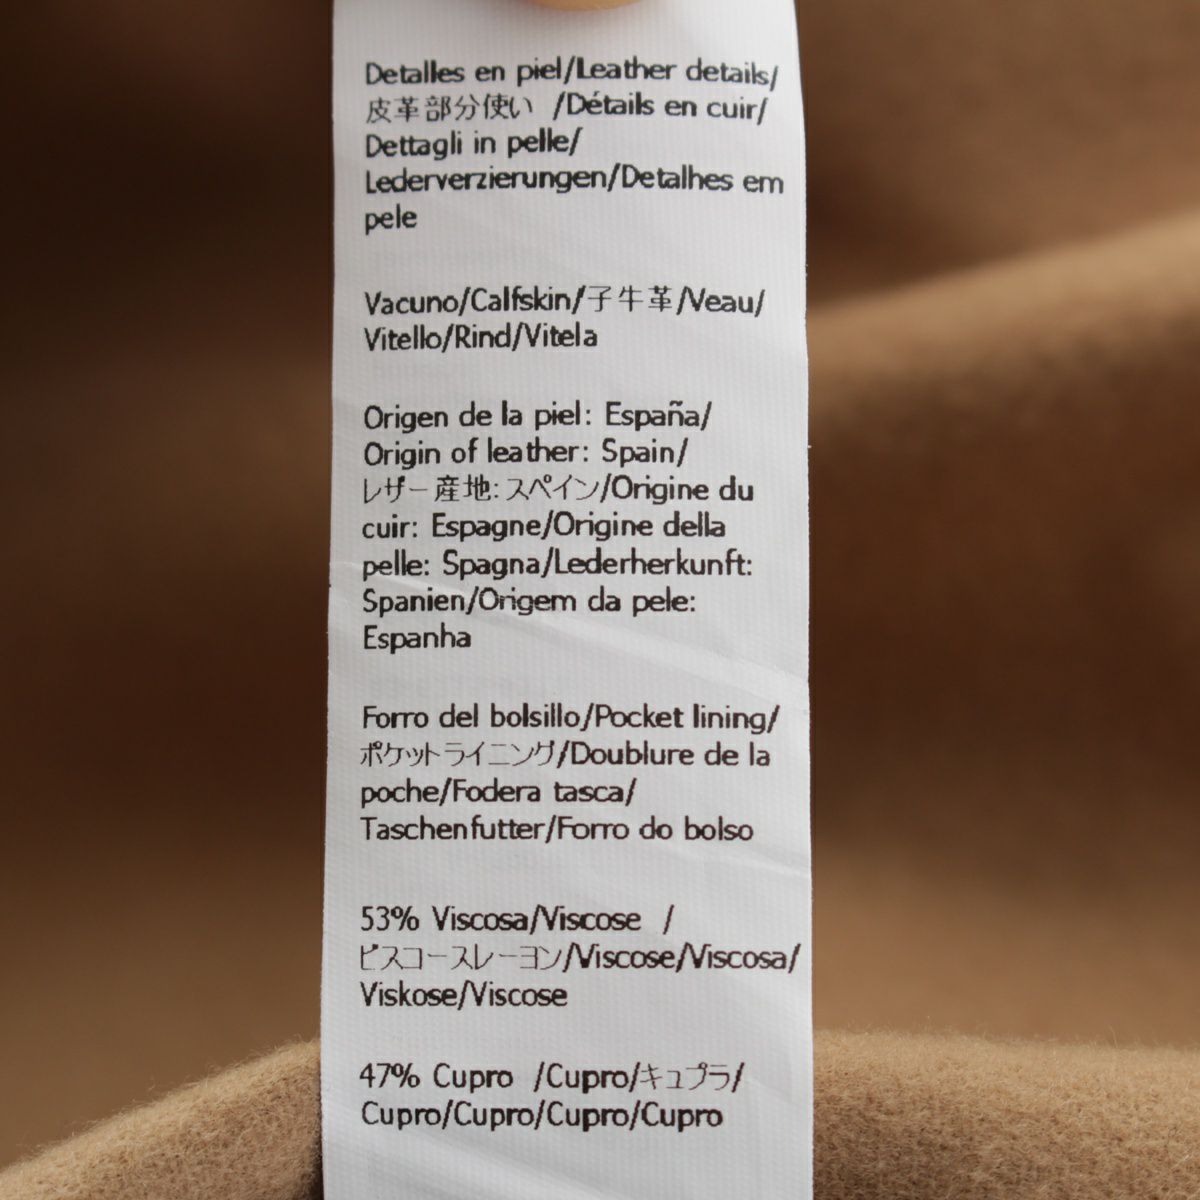 Detalles en piel/Leather details/
皮革部分使い /Détails en cuir/
Dettagli in pelle/
Lederverzierungen/Detalhes em
pele
Vacuno/Calfskin/子牛革/Veau/
Vitello/Rind/Vitela
Origen de la piel: España/
Origin of leather: Spain/
レザー産地:スペイン/Origine du
cuir: Espagne/Origine della
pelle: Spagna/Lederherkunft:
Spanien/Origem da pele:
Espanha
Forro del bolsillo/Pocket lining/
ポケットライニング/Doublure de la
poche/Fodera tasca/
Taschenfutter/Forro do bolso
53% Viscosa/Viscose /
ビスコースレーヨン/Viscose/Viscosa/
Viskose/Viscose
47% Cupro /Cupro/キュプラ/
Cupro/Cupro/Cupro/Cupro